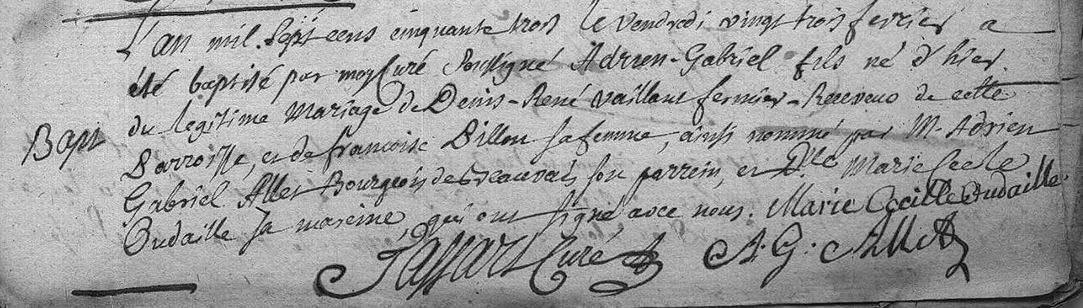 L'an mil Sept cens cinquante trois le vendredi vingt trois fevrier a
été baptisé par moy Curé Soussigné Adrien-Gabriel fils né d'hier.
du legitime Mariage de Denis-René Vaillant fermier-Receveur de cette
Bapt
Parroisse, et de françoise Dillon sa femme, ainsi nommé par M. Adrien
Gabriel Allet Bourgeois de Beauvais son parrein, et Dlle Marie Cecile
Oudaille sa mareine, qui ont signé avec nous. Marie Cecille Oudaille.
Curé A. G. Allet